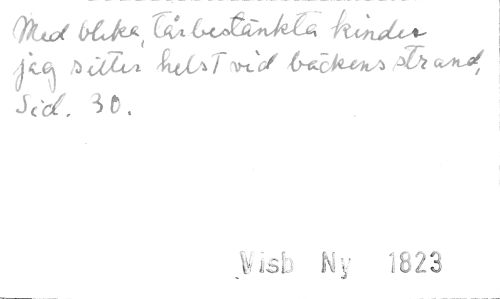 Med bleka, tårbestänkta kinder
jag sitter helst vid bäckens strand,
Sid. 30.
Visb Ny 1823